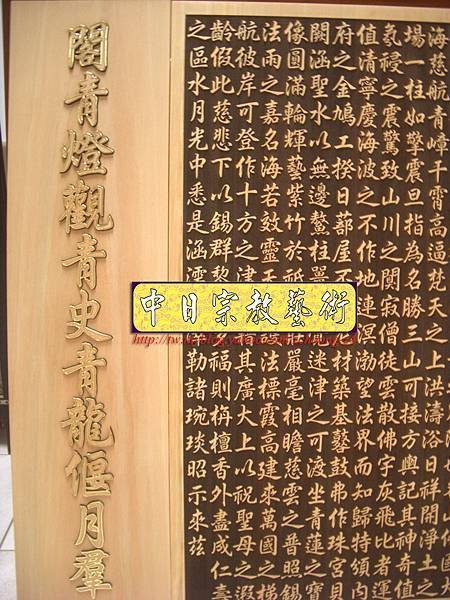 海慈航青嶂干霄高逼梵天之上洪濤浴日祥開淨土
場一柱如擎震旦指為名勝三山可接方輿記其神奇值
氛祲之震驚致山川之闃寂僧徒雲散佛宇灰飛比者運
值清寧慶海波之不作地連溟渤望法界而知歸特頒內
府之金鳩工揆日蔀屋不材築基鼛鼓弗作珠宮
闕涵聖水以無邊鰲柱迷津之可渡坐青蓮之寶
像圓滿輪輝藝紫竹於祇嚴毫相瞻慈雲之普照錫
法雨之嘉名海若效靈天法標霞高建來萬國之梯
航彼岸可登作十方之津其廣大上以祝
齡假此慈悲下以錫群黎福則栴檀香外盡成仁壽
之區水月光中悉是涵濡勒諸琬琰昭示來茲
閣青燈觀青史青龍偃月群
中日宗教藝術